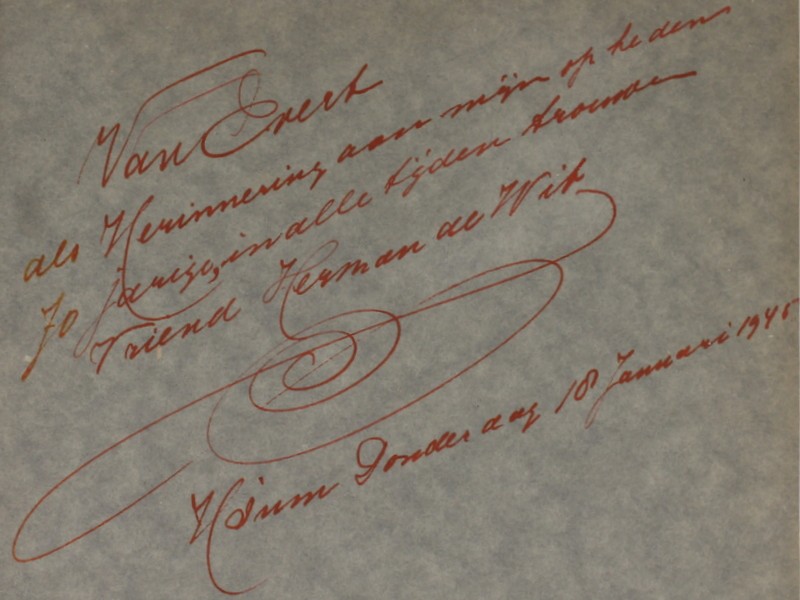 Van Evert
als Herinnering aan mijn op heden
70 jarige, in alle tijden trouwen
Vriend Herman de Wit
H'sum Donderdag 18 Januari 1945